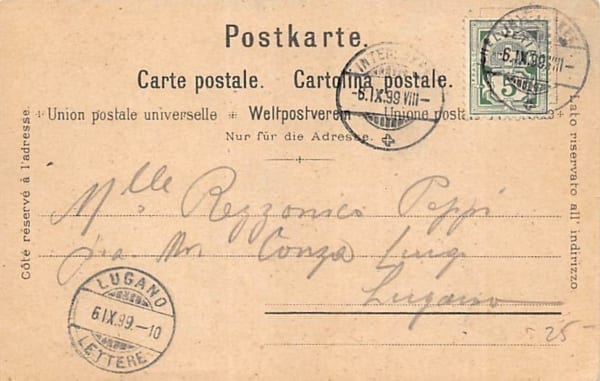 Postkarte.
Carte postale. Cartolina postale.
Union postale universelle Weltpostverein Unione posta
Nur für die Adresse.
Côté réservé à l'adresse.
Lato riservato all' indirizzo
INTERL
-6.IX.99 VIII-
-6.IX.99 VIII-
5
Mlle Rezzonico Peppi
Luigi
Lugano
LUGANO
6 IX.99.-10
LETTERE
25-